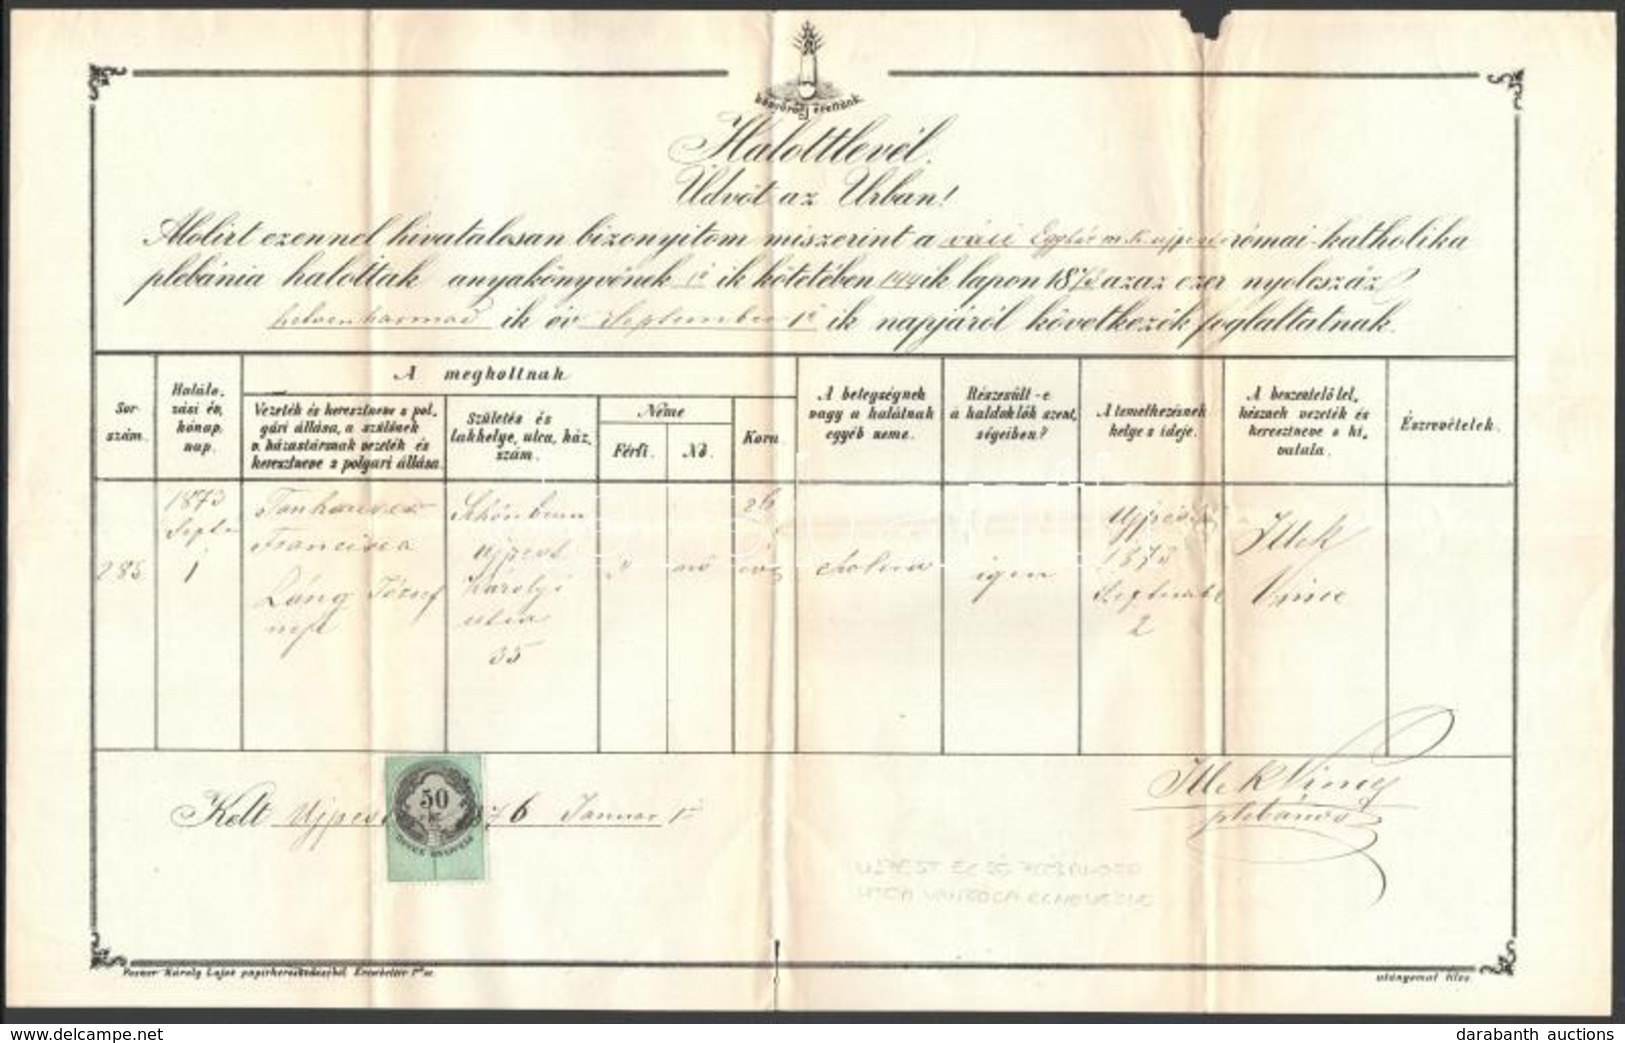 könyörögj érettünk
Halottlevél.
Üdvöt az Urban!
Alolirt ezennel hivatalosan bizonyitom miszerint a váci Egyház m. k. ujpesti római-katholika
plebánia halottak anyakönyvének 1ő ik kötetében 144 ik lapon 1873 azaz ezer nyolcszáz
hetvenharmad ik év September 1ő ik napjáról következők foglaltatnak.
Sor szám.
Halálozási év, hónap, nap.
A megholtnak
Vezeték és keresztneve s pol,
gári állása, a szülének
v. házastársnak vezeték és
keresztneve s polgari állása.
Születés és
lakhelye, utca, ház,
szám.
Neme
Férfi.
Nő.
Kora
A betegségnek
vagy a halálnak
egyéb neme.
Részesült-e
a haldoklók szent,
ségeiben?
A temetkezésnek
helye s ideje.
A beszentelő lel,
késznek vezeték és
keresztneve s hi,
vatala.
Észrevételek.
285
1873
Septe
1
Francisca
Láng József
neje
Schönbrun
ujpest
Karolyi
utca
35
nő
26
évs
cholera
igen
Ujpest
1873
September
2
Illek
Vince
Kelt Ujpest 1876 Januar 1ő
50
KR
Illek Vince
plebános
UJPEST ELSŐ PLÉBÁNOSA
UTCA VAN RÓLA ELNEVEZVE
Posner Károly Lajos papirkereskedéséből Erzsébettér 1ső sz.
utányomat tilos
www.delcampe.net
darabanth auctions